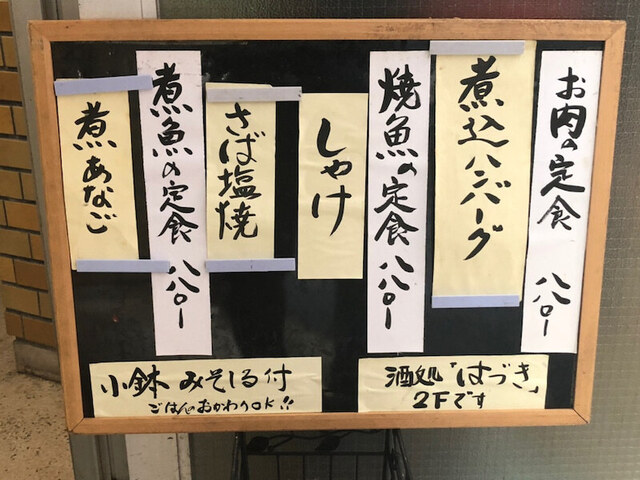 お肉の定食 八八〇ー
煮込ハンバーグ
焼魚の定食 八八〇ー
しゃけ
さば塩焼
煮魚の定食 八八〇ー
煮あなご
小鉢 みそしる付
ごはんのおかわりOK!!
酒処「はづき」
2Fです